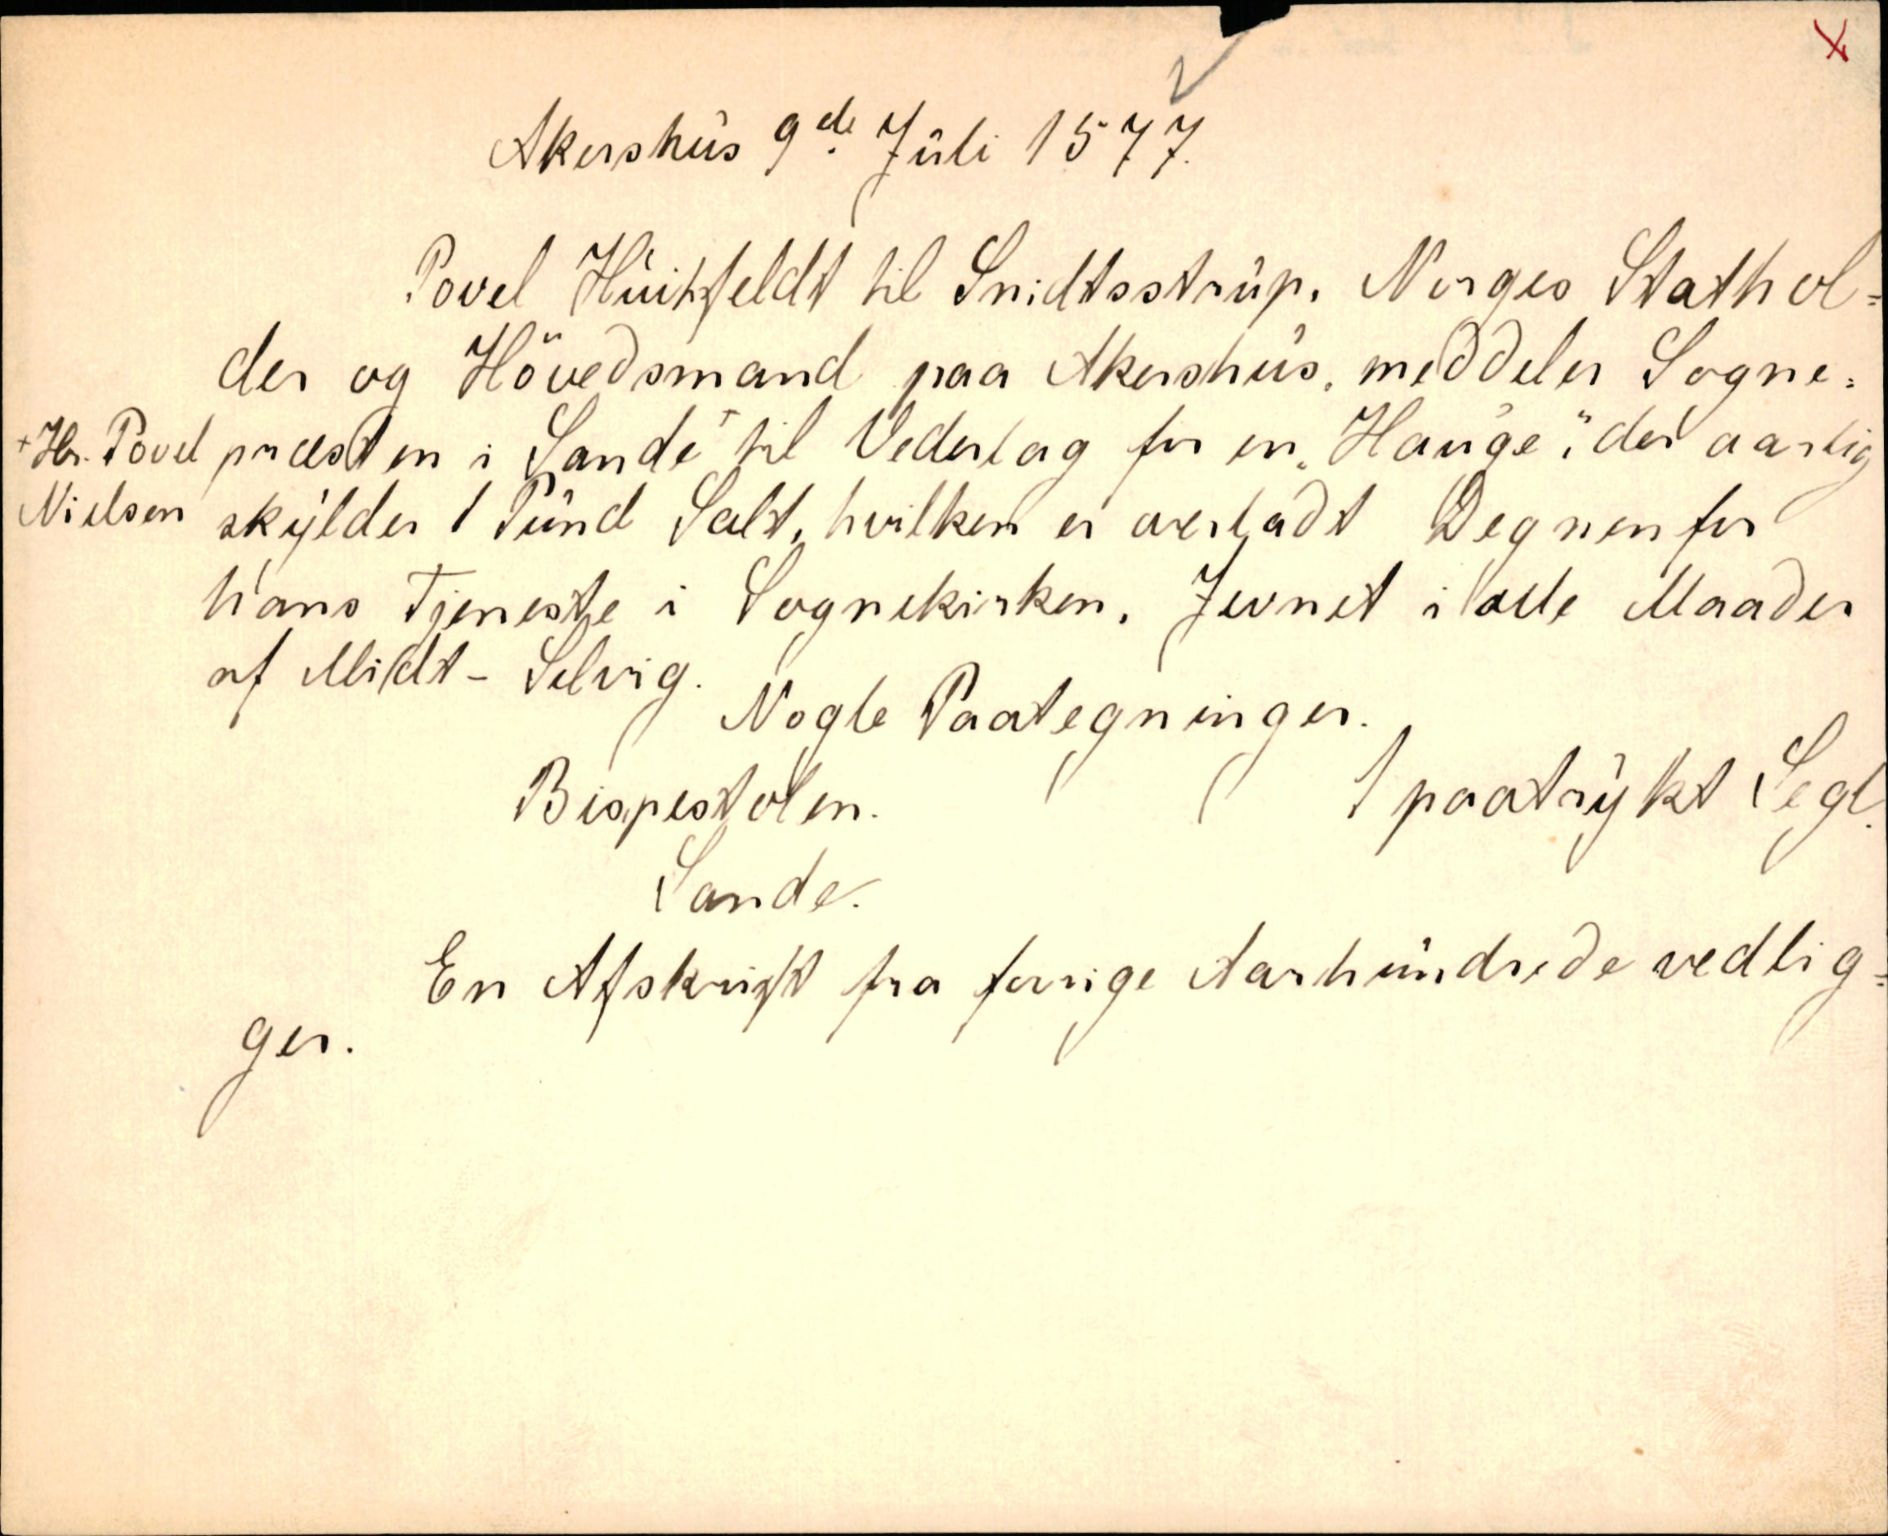 Akershus 9de Juli 1577.
Povel Huitfeldt til Snidtsstrup, Norges Stathol=
der og Hövedsmand paa Akershus, meddeler Sogne=
præsten i Sande + til Vederlag for en „Hauge", der aarlig
+ Hr. Povel
Nielsen
skylder 1 Pund Salt, hvilken er overladt Degnen for
hans Tjeneste i Sognekirken, Jevnet i alle Maader
af Midt-Selvig.
Nogle Paategninger.
Bispestolen.
1 paatrykt Segl.
Sande.
En Afskrift fra forrige Aarhundrede vedlig=
ger.